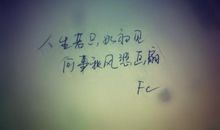 人生若只如初见
何事秋风悲画扇
Fc